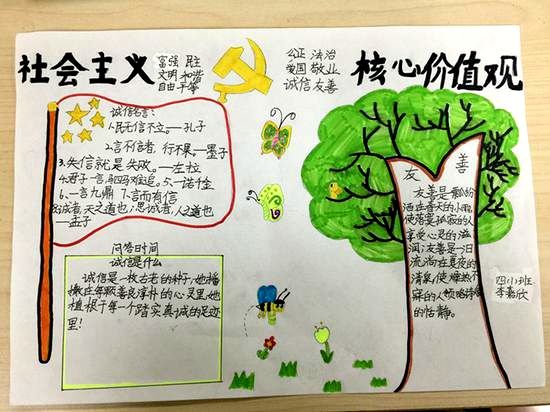 社会主义
富强 民主
文明 和谐
自由 平等
公正 法治
爱国 敬业
诚信 友善
核心价值观
诚信名言:
1.民无信不立。——孔子
2.言不信者,行不果。——墨子
3.失信就是失败。——左拉
4.君子一言,驷马难追。5.一诺千金
6.一言九鼎 7.言而有信
8.诚者,天之道也;思诚者,人之道也
——孟子
问答时间
诚信是什么
诚信是一枚古老的种子,她播
撒在每颗善良淳朴的心灵里,她
植根于每一个踏实真诚的足迹
里!
友善
友善是飘船
洒在春天的小雨,
使落寞孤寂的人
享受心灵的滋
润;友善是一日
流淌在夏夜的
清泉,使燥热不
寐的人领略诗般
的恬静。
四(小)班
李嘉欣